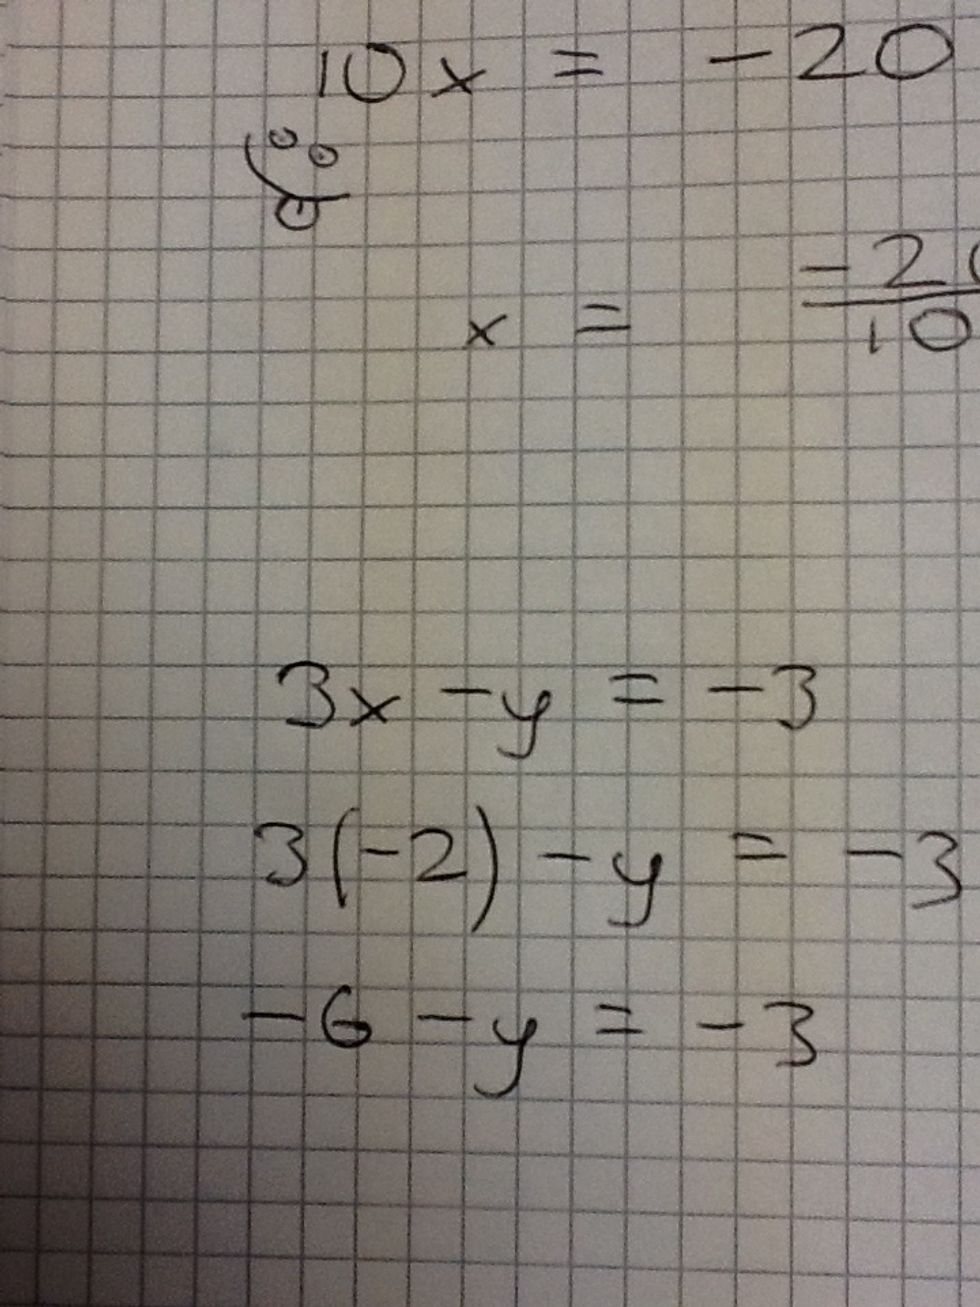 10x = -20
x = -20/10
3x - y = -3
3(-2) - y = -3
-6 - y = -3